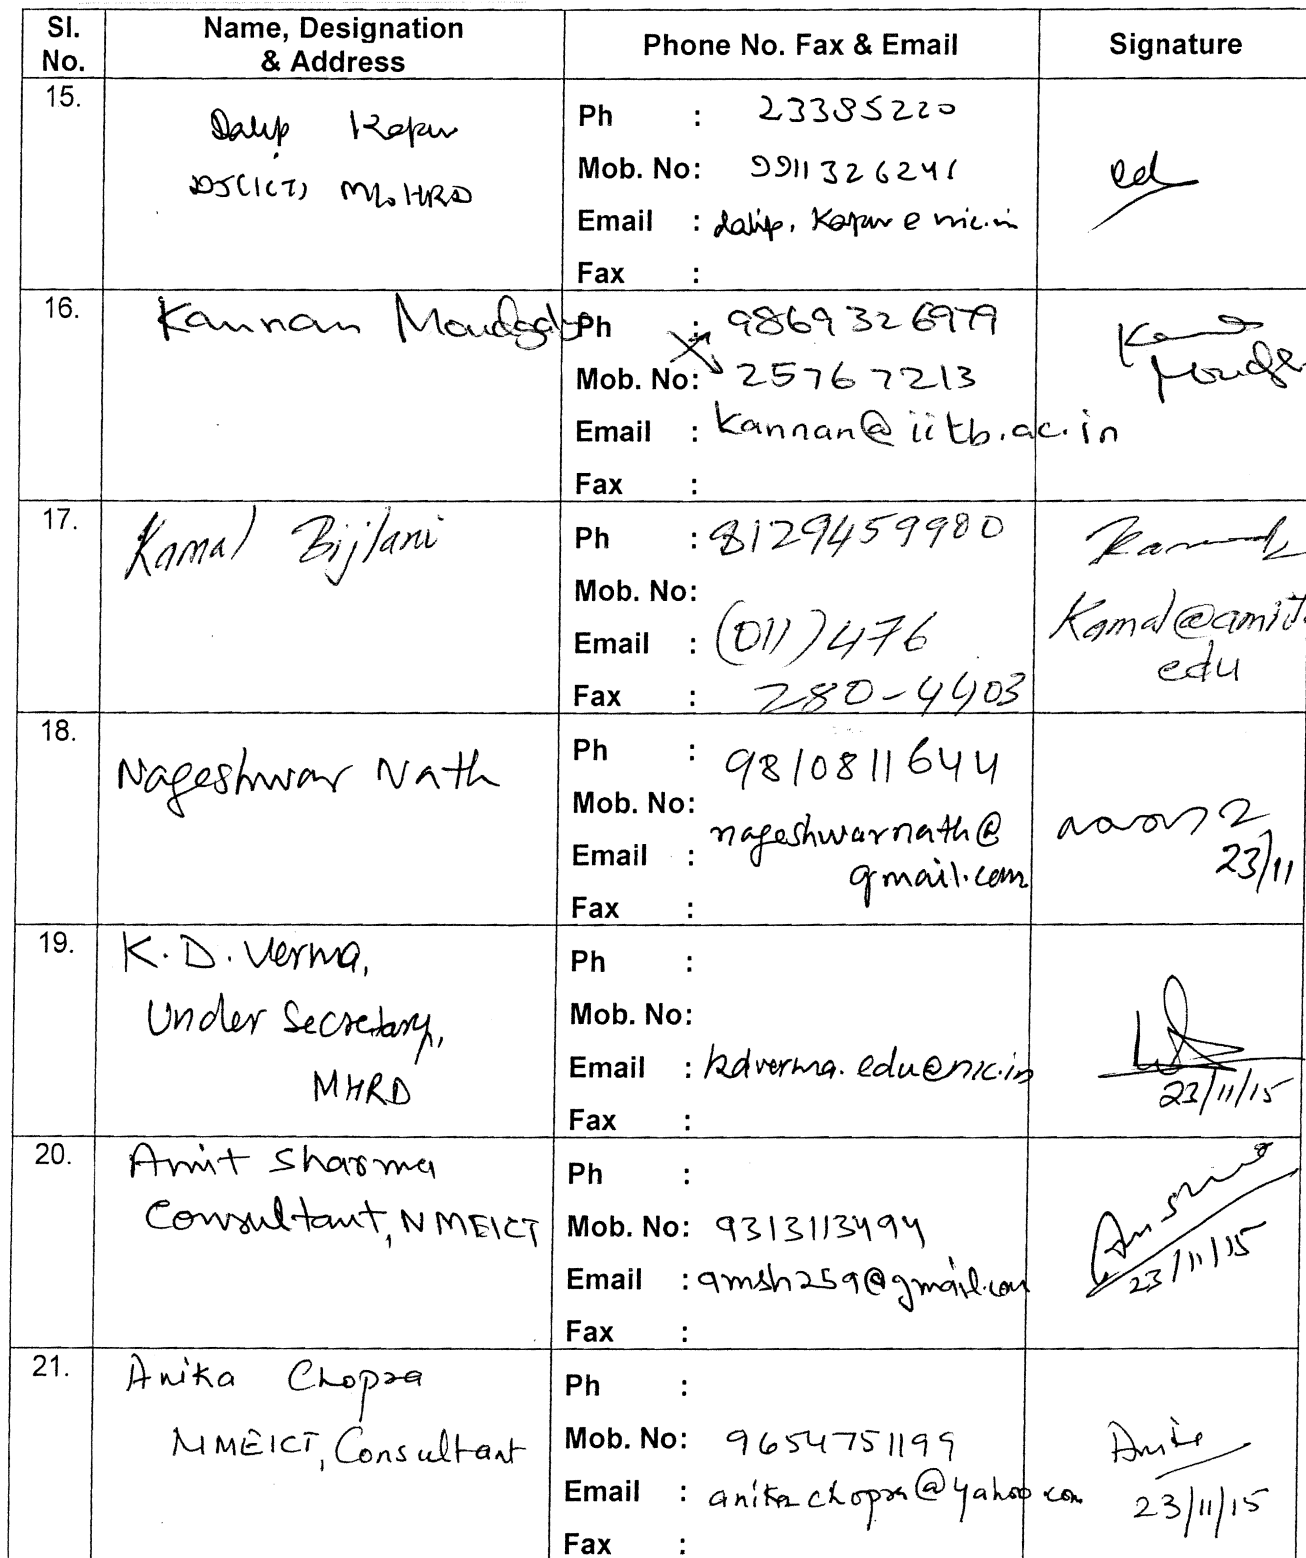 Sl. No. Name, Designation & Address Phone No. Fax & Email Signature
15.
Dalip Kapur
DS(ICT) M/o HRD
Ph : 23385220
Mob. No: 9911326241
Email : dalip.kapur@nic.in
Fax :
16.
Kannan Moudgalya
Ph : 9869326979
Mob. No: 25767213
Email : kannan@iitb.ac.in
Fax :
Kannan
17.
Kamal Bijlani
Ph : 8129459980
Mob. No:
Email : (011) 476
Fax : 280-4403
Kamal
Kamal@amit.
edu
18.
Nageshwar Nath
Ph : 9810811644
Mob. No:
Email : nageshwarnath@
gmail.com
Fax :
23/11
19.
K. D. Verma,
Under Secretary,
MHRD
Ph :
Mob. No:
Email : kdverma.edu@nic.in
Fax :
23/11/15
20.
Amit Sharma
Consultant, NMEICT
Ph :
Mob. No: 9313113494
Email : amsh259@gmail.com
Fax :
23/11/15
21.
Anika Chopra
NMEICT, Consultant
Ph :
Mob. No: 9654751199
Email : anikachopra@yahoo.com
Fax :
23/11/15